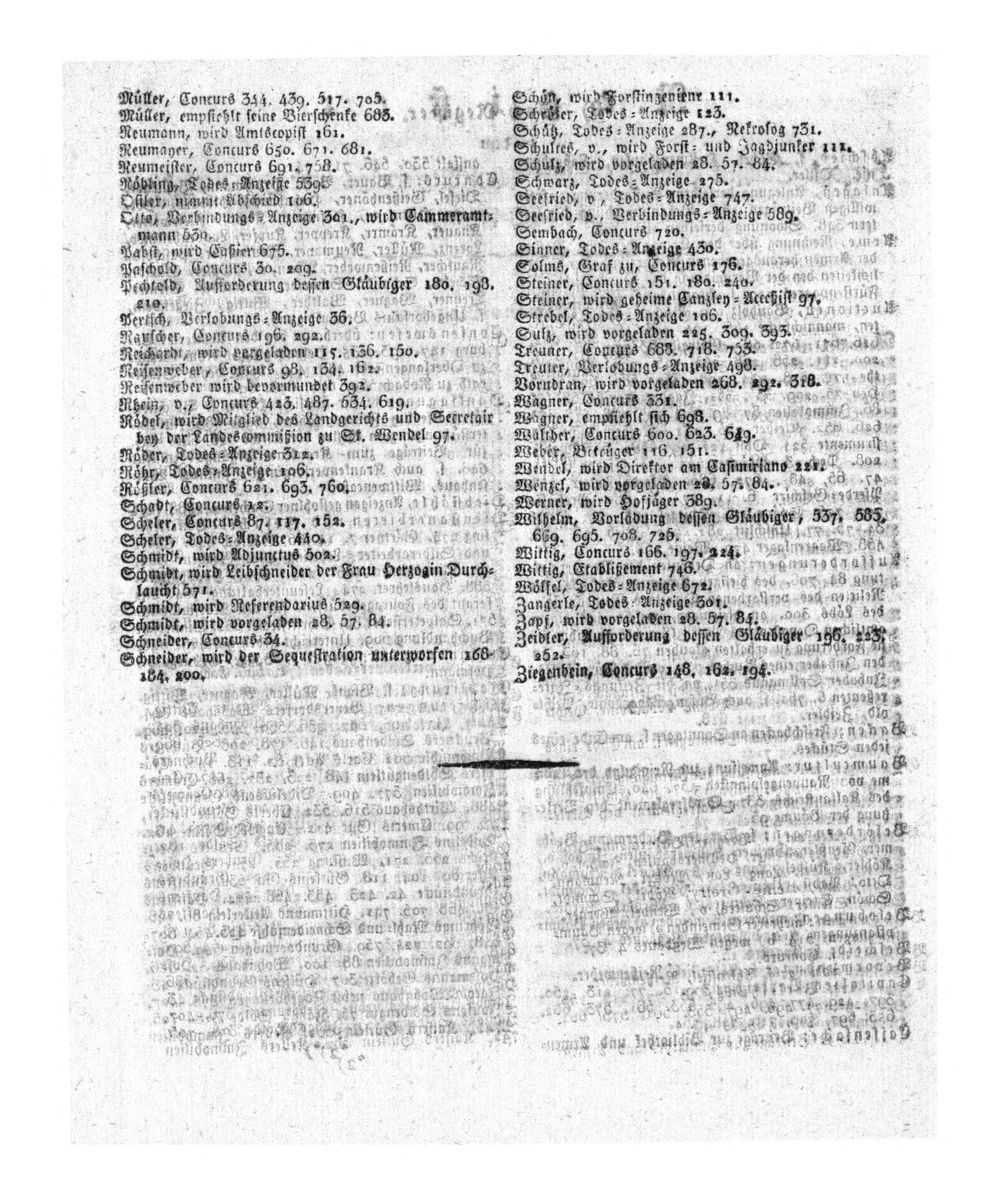 Müller, Concurs 344. 439. 517. 705.
Müller, empfiehlt seine Bierschenke 683.
Neumann, wird Amtscopist 161.
Neumayer, Concurs 650. 671. 681.
Neumeister, Concurs 691. 758.
Nöbling, Todes-Anzeige 539.
Ostler, nimmt Abschied 106.
Otto, Verbindungs-Anzeige 301., wird Cammeramt-
mann 530.
Pabst, wird Caßier 675.
Paschold, Concurs 30. 209.
Pechtold, Aufforderung dessen Gläubiger 180. 193.
210.
Pertsch, Verlobungs-Anzeige 36.
Rauscher, Concurs 196. 292.
Reichardt, wird vorgeladen 115. 136. 150.
Reisenweber, Concurs 98. 134. 162.
Reisenweber wird bevormundet 392.
Rhein, v., Concurs 423. 487. 534. 619.
Rödel, wird Mitglied des Landgerichts und Secretair
bey der Landescommißion zu St. Wendel 97.
Röder, Todes-Anzeige 312.
Röhr, Todes-Anzeige 106.
Rößler, Concurs 621. 693. 760.
Schadt, Concurs 12.
Scheler, Concurs 87. 117. 152.
Scheler, Todes-Anzeige 440.
Schmidt, wird Adjunctus 502.
Schmidt, wird Leibschneider der Frau Herzogin Durch-
laucht 571.
Schmidt, wird Referendarius 529.
Schmidt, wird vorgeladen 28. 57. 84.
Schneider, Concurs 34.
Schneider, wird der Sequestration unterworfen 168
184. 200.
Schön, wird Forstingenieur 111.
Schröter, Todes-Anzeige 123.
Schütz, Todes-Anzeige 287., Nekrolog 731.
Schultes, v., wird Forst- und Jagdjunker 111.
Schulz, wird vorgeladen 28. 57. 84.
Schwarz, Todes-Anzeige 275.
Seefried, v, Todes-Anzeige 747.
Seefried, v., Verbindungs-Anzeige 589.
Sembach, Concurs 720.
Sinner, Todes-Anzeige 430.
Solms, Graf zu, Concurs 176.
Steiner, Concurs 151. 180. 240.
Steiner, wird geheime Canzley-Accessist 97.
Strebel, Todes-Anzeige 106.
Sulz, wird vorgeladen 225. 309. 393.
Treuner, Concurs 683. 718. 753.
Treuter, Verlobungs-Anzeige 498.
Vorndran, wird vorgeladen 268. 292. 318.
Wagner, Concurs 331.
Wagner, empfiehlt sich 698.
Walther, Concurs 600. 623. 649.
Weber, Betrüger 116. 151.
Wendel, wird Direktor am Casimiriano 221.
Wenzel, wird vorgeladen 28. 57. 84.
Werner, wird Hofjäger 389.
Wilhelm, Vorladung dessen Gläubiger, 537. 585.
669. 695. 708. 725.
Wittig, Concurs 166. 197. 224.
Wittig, Etablißement 746.
Wölfel, Todes-Anzeige 672.
Zangerle, Todes-Anzeige 301.
Zapf, wird vorgeladen 28. 57. 84.
Zeidler, Aufforderung dessen Gläubiger 196. 223.
252.
Ziegenbein, Concurs 148. 162. 194.